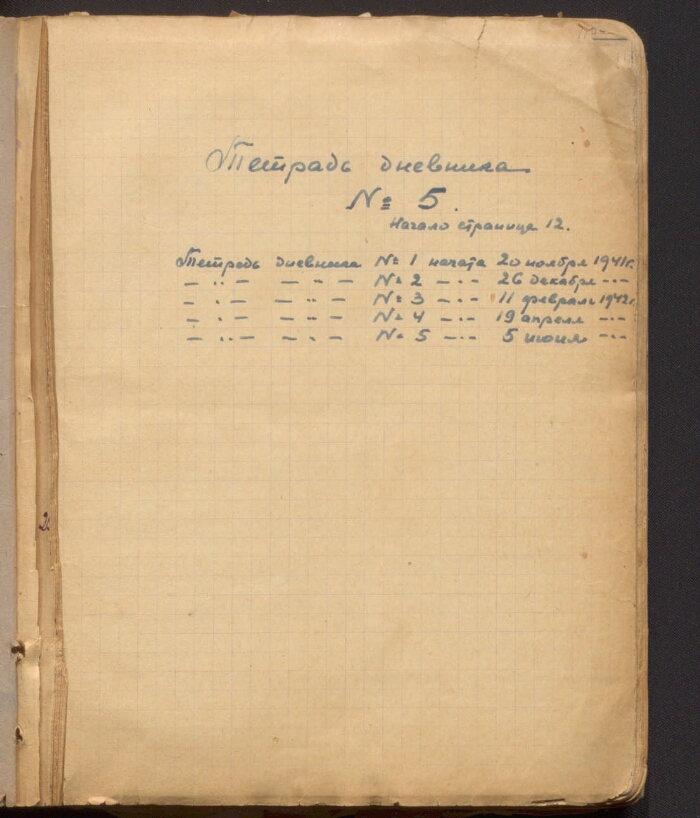 Тетрадь дневника
№ 5.
Начало странице 12.
Тетрадь дневника № 1 начата 20 ноября 1941г.
— ·· — — ·· — № 2 — ·· — 26 декабря — ·· —
— ·· — — ·· — № 3 — ·· — 11 февраль 1942г.
— ·· — — ·· — № 4 — ·· — 19 апреля — ·· —
— ·· — — ·· — № 5 — ·· — 5 июня — ·· —
2